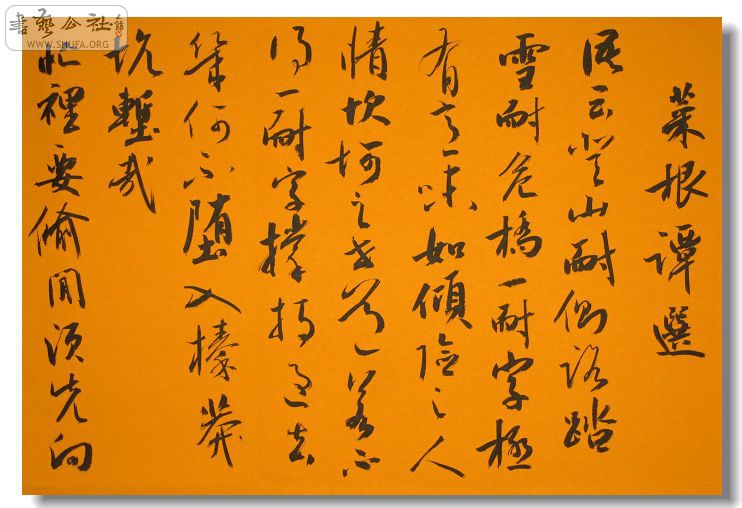 菜根譚選
語云登山耐側路踏
雪耐危橋一耐字極
有意味如傾險之人
情坎坷之世道若不
得一耐字撐持過去
幾何不堕入榛莽
坑塹哉
忙裡要偷閒須先向
書藝公社
WWW.SHUFA.ORG